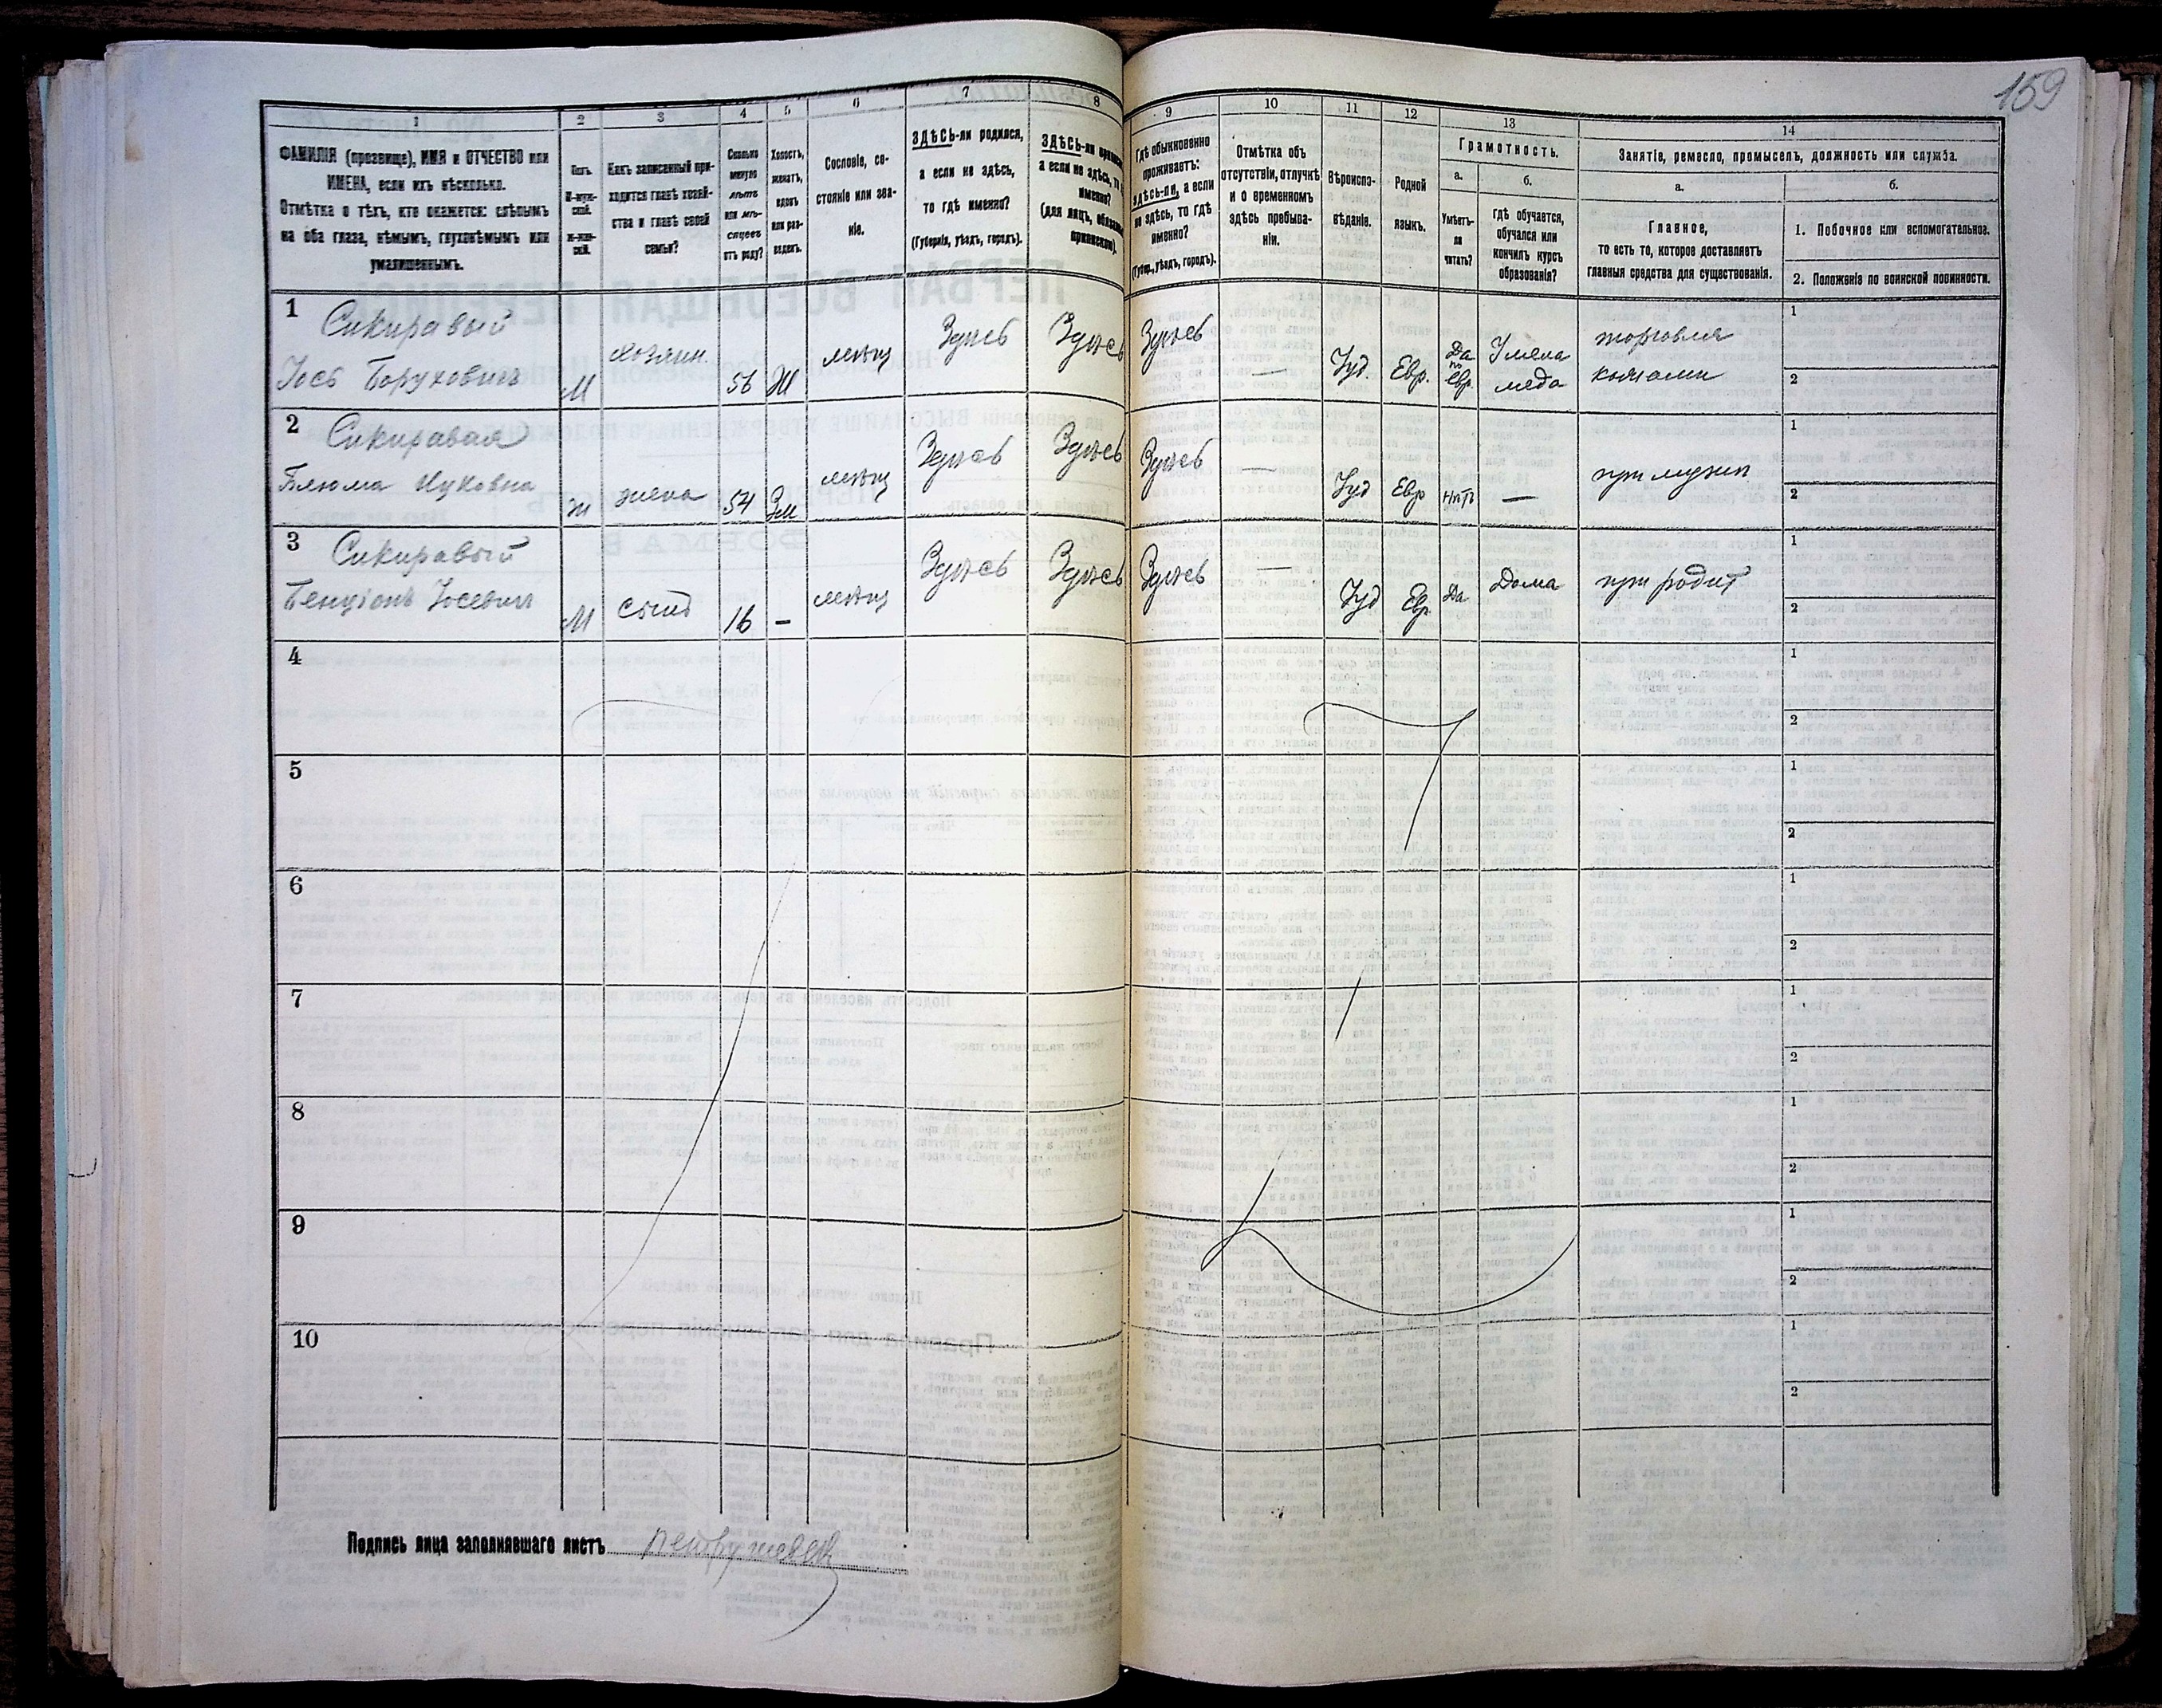 159
1
2
3
4
5
6
7
8
9
10
11
12
13
14
ФАМИЛІЯ (прозвище), ИМЯ и ОТЧЕСТВО или
ИМЕНА, если ихъ нѣсколько.
Отмѣтка о тѣхъ, кто окажется: слѣпымъ
на оба глаза, нѣмымъ, глухонѣмымъ или
умалишеннымъ.
Полъ.
М-муж-
ской.
ж-жен-
скій.
Какъ записанный при-
ходится главѣ хозяй-
ства и главѣ своей
семьи?
Сколько
минуло
лѣтъ
или мѣ-
сяцевъ
отъ роду?
Холостъ,
женатъ,
вдовъ
или раз-
веденъ.
Сословіе, со-
стояніе или зва-
ніе.
ЗДѢСЬ-ли родился,
а если не здѣсь,
то гдѣ именно?
(Губернія, уѣздъ, городъ).
ЗДѢСЬ-ли
а если не здѣсь, то
именно?
(для лицъ,
Гдѣ обыкновенно
проживаетъ:
здѣсь-ли, а если
не здѣсь, то гдѣ
именно?
(Губер., уѣздъ, городъ).
Отмѣтка объ
отсутствіи, отлучкѣ
и о временномъ
здѣсь пребыва-
ніи.
Вѣроиспо-
вѣданіе.
Родной
языкъ.
Грамотность.
а.
б.
Умѣетъ-
ли
читать?
Гдѣ обучается,
обучался или
кончилъ курсъ
образованія?
Занятіе, ремесло, промыселъ, должность или служба.
а.
б.
Главное,
то есть то, которое доставляетъ
главныя средства для существованія.
1. Побочное или вспомогательное.
2. Положеніе по воинской повинности.
1 Сикиравый
Іось Боруховичъ
М
хозяин
56
Ж
мѣщ
Здѣсь
Здѣсь
Здѣсь
—
Іуд.
Евр.
Да
по
евр.
У мела
меда
торговля
кожами
1
2
2 Сикиравая
Блюма Ицковна
ж
жена
54
Зм
мѣщ
Здѣсь
Здѣсь
Здѣсь
—
Іуд
Евр
нѣтъ
—
при мужѣ
1
2
3 Сикиравый
Бенціонъ Іосевич
М
сынъ
16
–
мѣщ
Здѣсь
Здѣсь
Здѣсь
—
Іуд
Евр
Да
Дома
при родит
1
2
4
1
2
5
1
2
6
1
2
7
1
2
8
1
2
9
1
2
10
1
2
Подпись лица заполнявшаго листъ